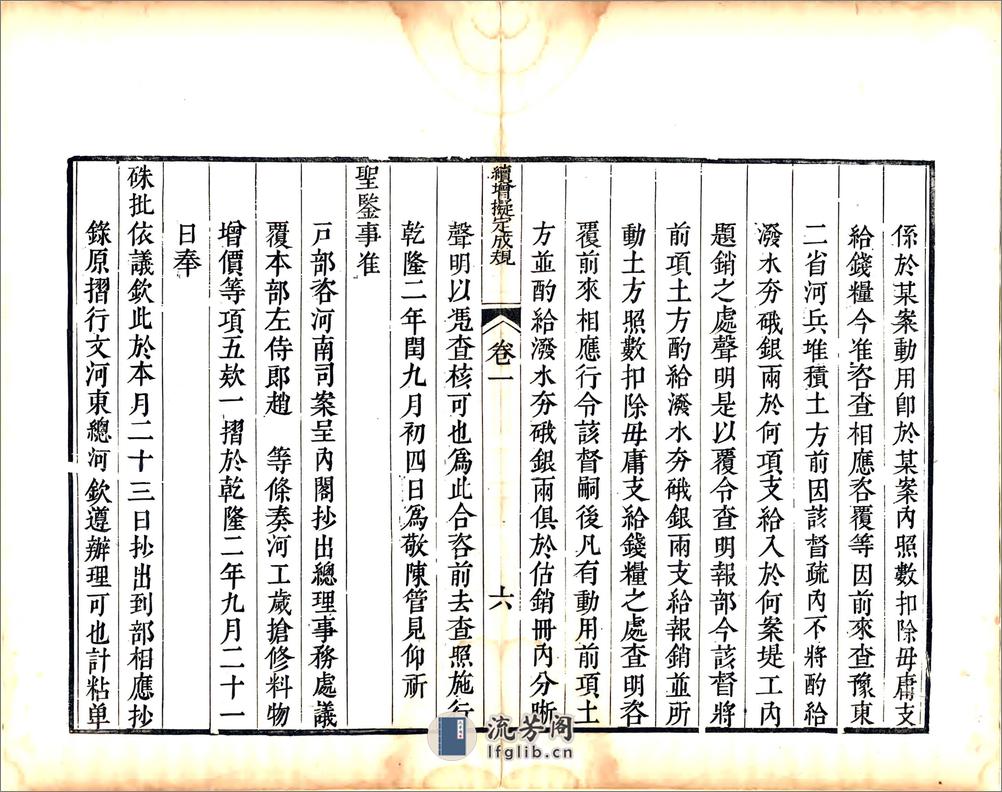 係於某案動用卽於某案內照數扣除毋庸支
給錢糧今准咨查相應咨覆等因前來查豫東
二省河兵堆積土方前因該督疏內不將酌給
潑水夯硪銀兩於何項支給入於何案堤工內
題銷之處聲明是以覆令查明報部今該督將
前項土方酌給潑水夯硪銀兩支給報銷並所
動土方照數扣除毋庸支給錢糧之處查明咨
覆前來相應行令該督嗣後凡有動用前項土
方並酌給潑水夯硪銀兩俱於估銷冊內分晰
續增擬定成規 卷一 六
聲明以凭查核可也爲此合咨前去查照施行
乾隆二年閏九月初四日爲敬陳管見仰祈
聖鑒事准
戸部咨河南司案呈內閣抄出總理事務處議
覆本部左侍郎趙 等條奏河工歲搶修料物
增價等項五欵一摺於乾隆二年九月二十一
日奉
硃批依議欽此於本月二十三日抄出到部相應抄
錄原摺行文河東總河欽遵辦理可也計粘单
流芳阁
lfglib.cn